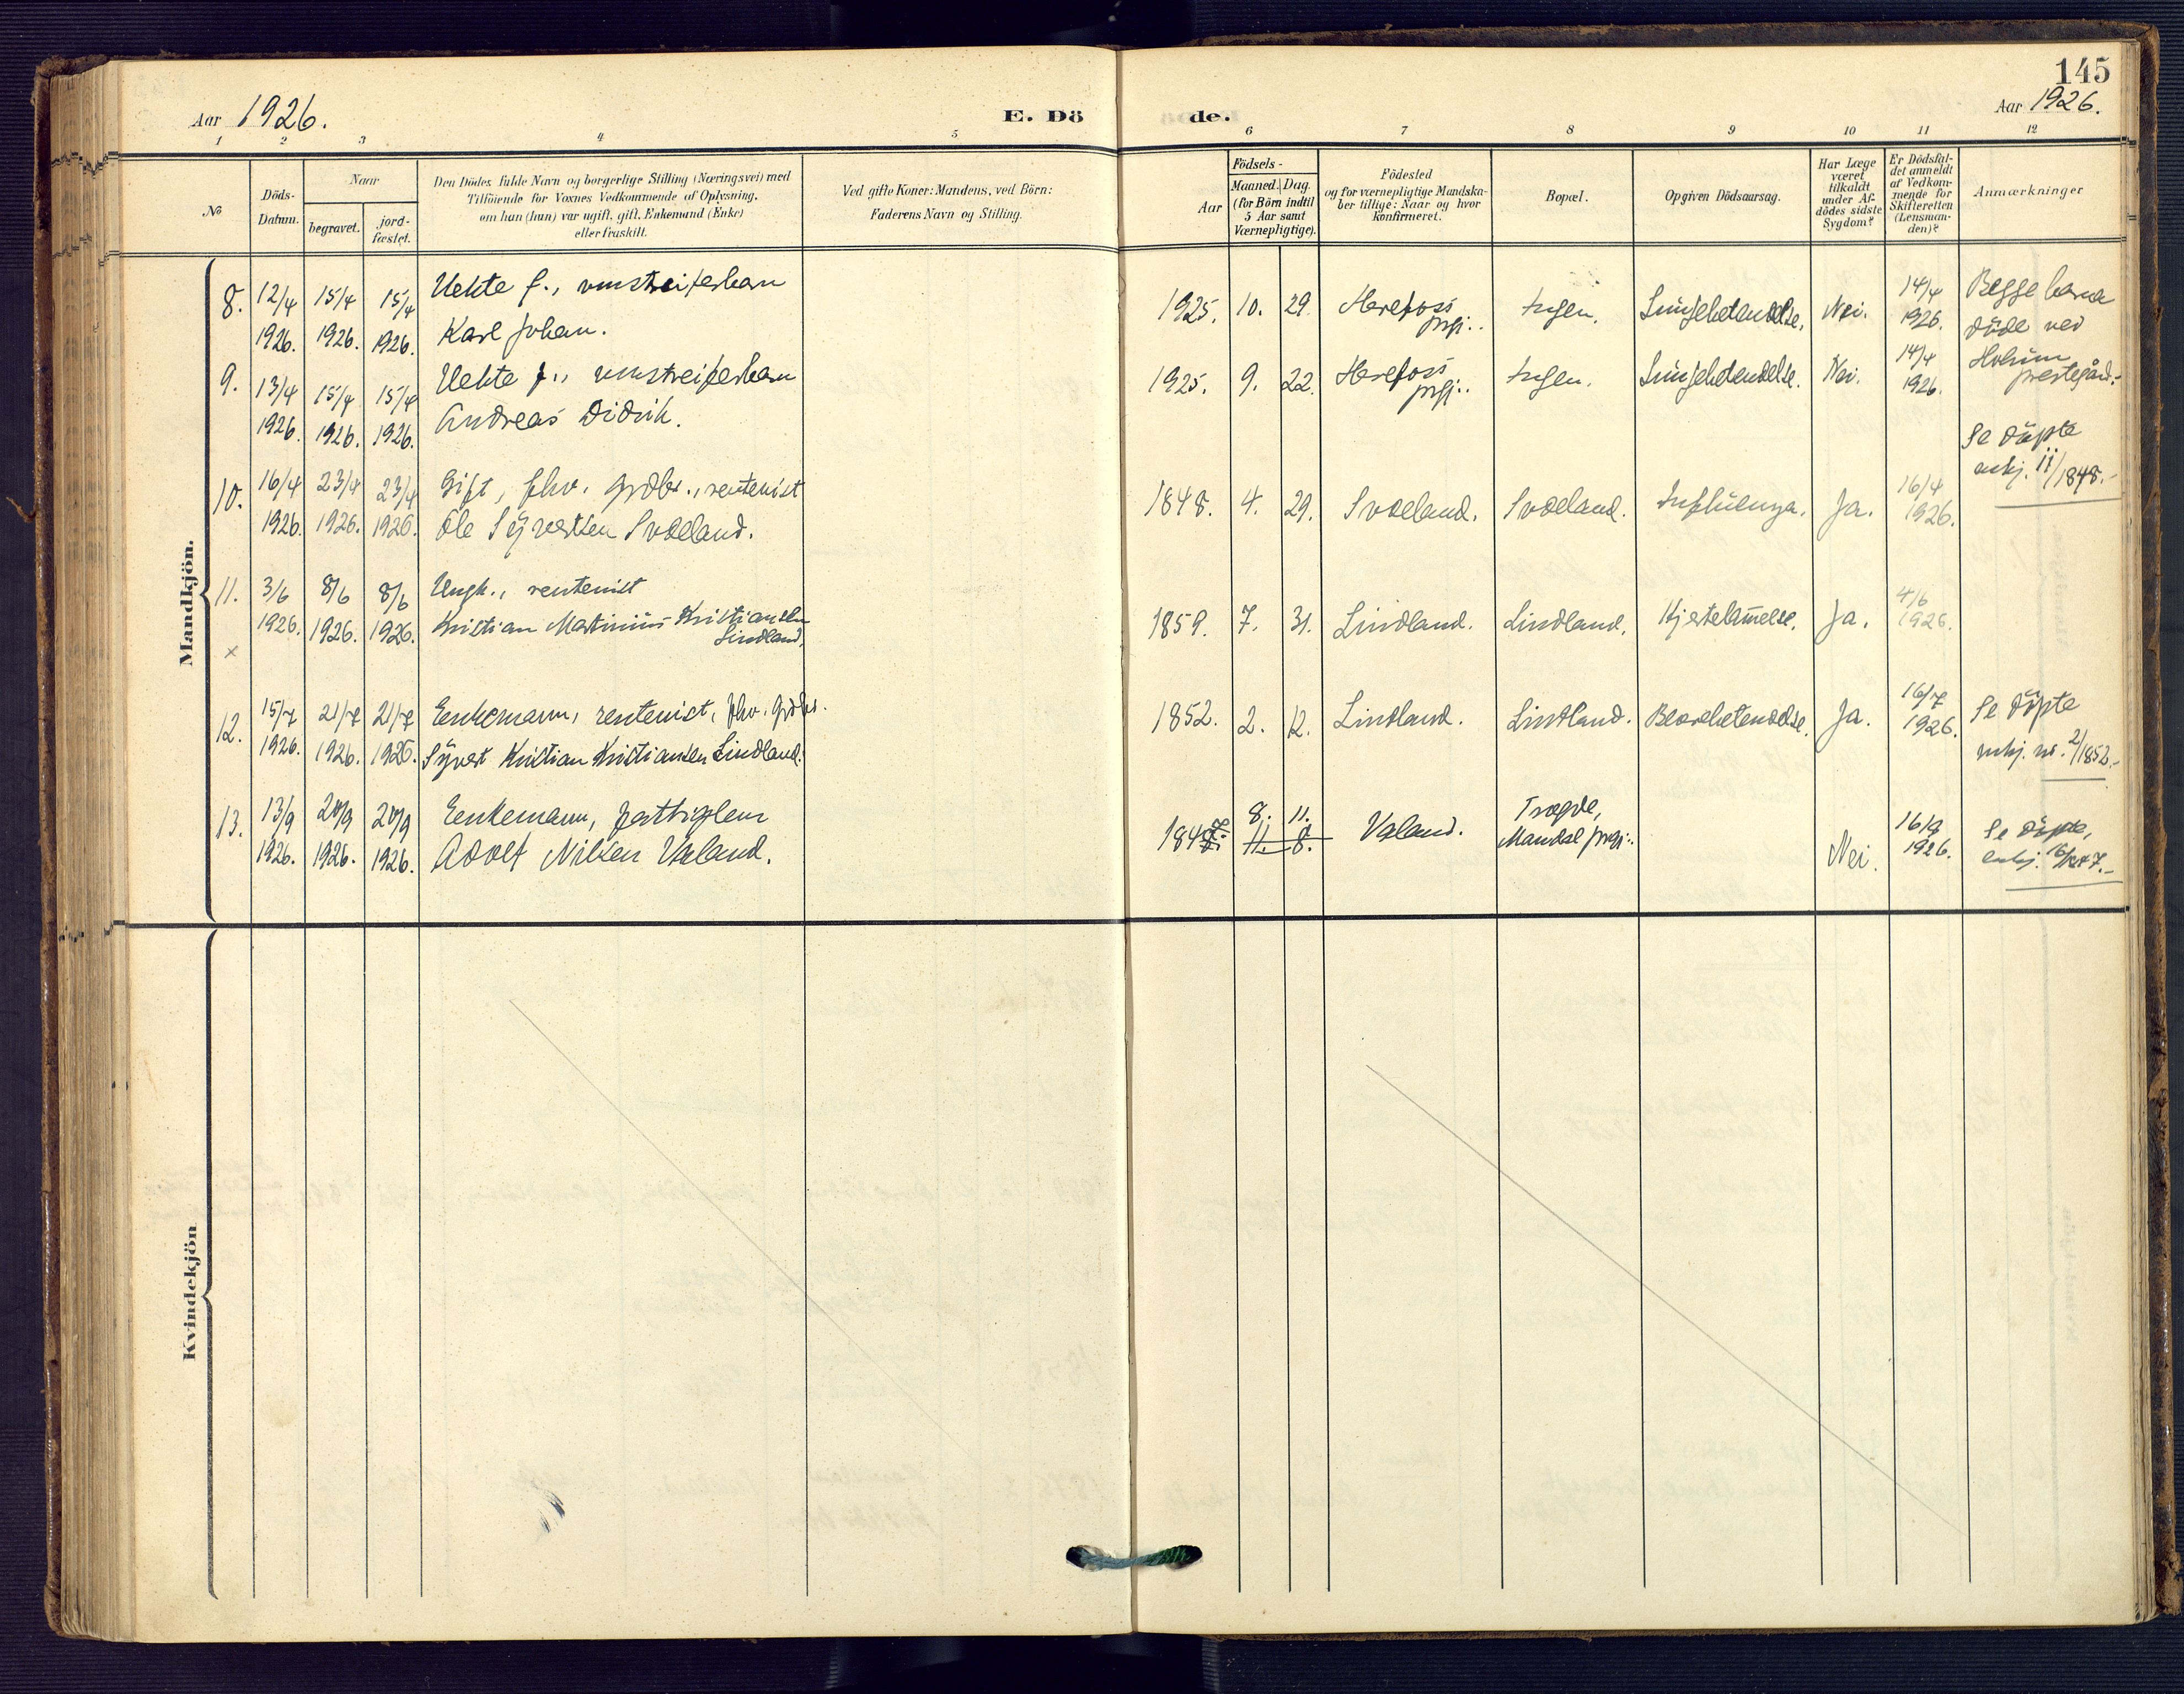 145
Aar 1926.
E. Dö
de.
Aar 1926.
1 2 3 4 5 6 7 8 9 10 11 12
No
Döds-
Datum.
Naar
begravet.
jord-
fæstet.
Den Dödes fulde Navn og borgerlige Stilling (Næringsvei) med
Tilföiende for Voxnes Vedkommende af Oplysning,
om han (hun) var ugift, gift, Enkemand (Enke)
eller fraskilt.
Ved gifte Koner: Mandens, ved Börn:
Faderens Navn og Stilling.
Aar
Födsels-
Maaned. Dag.
(for Börn indtil
5 Aar samt
Værnepligtige).
Födested
og for værnepligtige Mandska-
ber tillige: Naar og hvor
konfirmeret.
Bopæl.
Opgiven Dödsaarsag.
Har Læge
været
tilkaldt
under Af-
dödes sidste
Sygdom?
Er Dödsfal-
det anmeldt
af Vedkom-
mende for
Skifteretten
(Lensman-
den)?
Anmærkninger
Mandkjön.
8. 12/4 15/4 15/4 Uekte f., omstreiferbarn 1925. 10. 29. Herefoss Ingen. Lungebetendelse. Nei. 14/4 Begge barna
1926. 1926. 1926. Karl Johan. prgj.. 1926. døde ved
9. 13/4 15/4 15/4 Uekte f., omstreiferbarn 1925. 9. 22. Herefoss Ingen. Lungebetendelse. Nei. 14/4 Holum
1926. 1926. 1926. Andreas Didrik. prgj.. 1926. prestegård.-
Se døpte
mkj. 11/1848.-
10. 16/4 23/4 23/4 Gift, fhv. grdbr., rentenist 1848. 4. 29. Svdeland. Svdeland. Influenza. Ja. 16/4
1926. 1926. 1926. Ole Syvertsen Svdeland. 1926.
11. 3/6 8/6 8/6 Ungk., rentenist 1859. 7. 31. Lindland. Lindland. Hjertelammelse. Ja. 4/6
1926. 1926. 1926. Kristian Martinius Kristiansen 1926.
Lindland.
x
12. 15/7 21/7 21/7 Enkemann, rentenist, fhv. grdbr. 1852. 2. 12. Lindland. Lindland. Ja. 16/7 Se døpte
1926. 1926. 1926. Syvert Kristian Kristiansen Lindland. 1926. mkj. nr. 2/1852.-
13. 13/9 20/9 20/9 Enkemann, fattiglem 1847. 8. 11. Valand. Tregde, Nei. 16/9 Se døpte,
1926. 1926. 1926. Adolf Nilsen Valand. 11. 8. Mandal prgj.. 1926. mkj. 16/1847.-
Kvindekjön